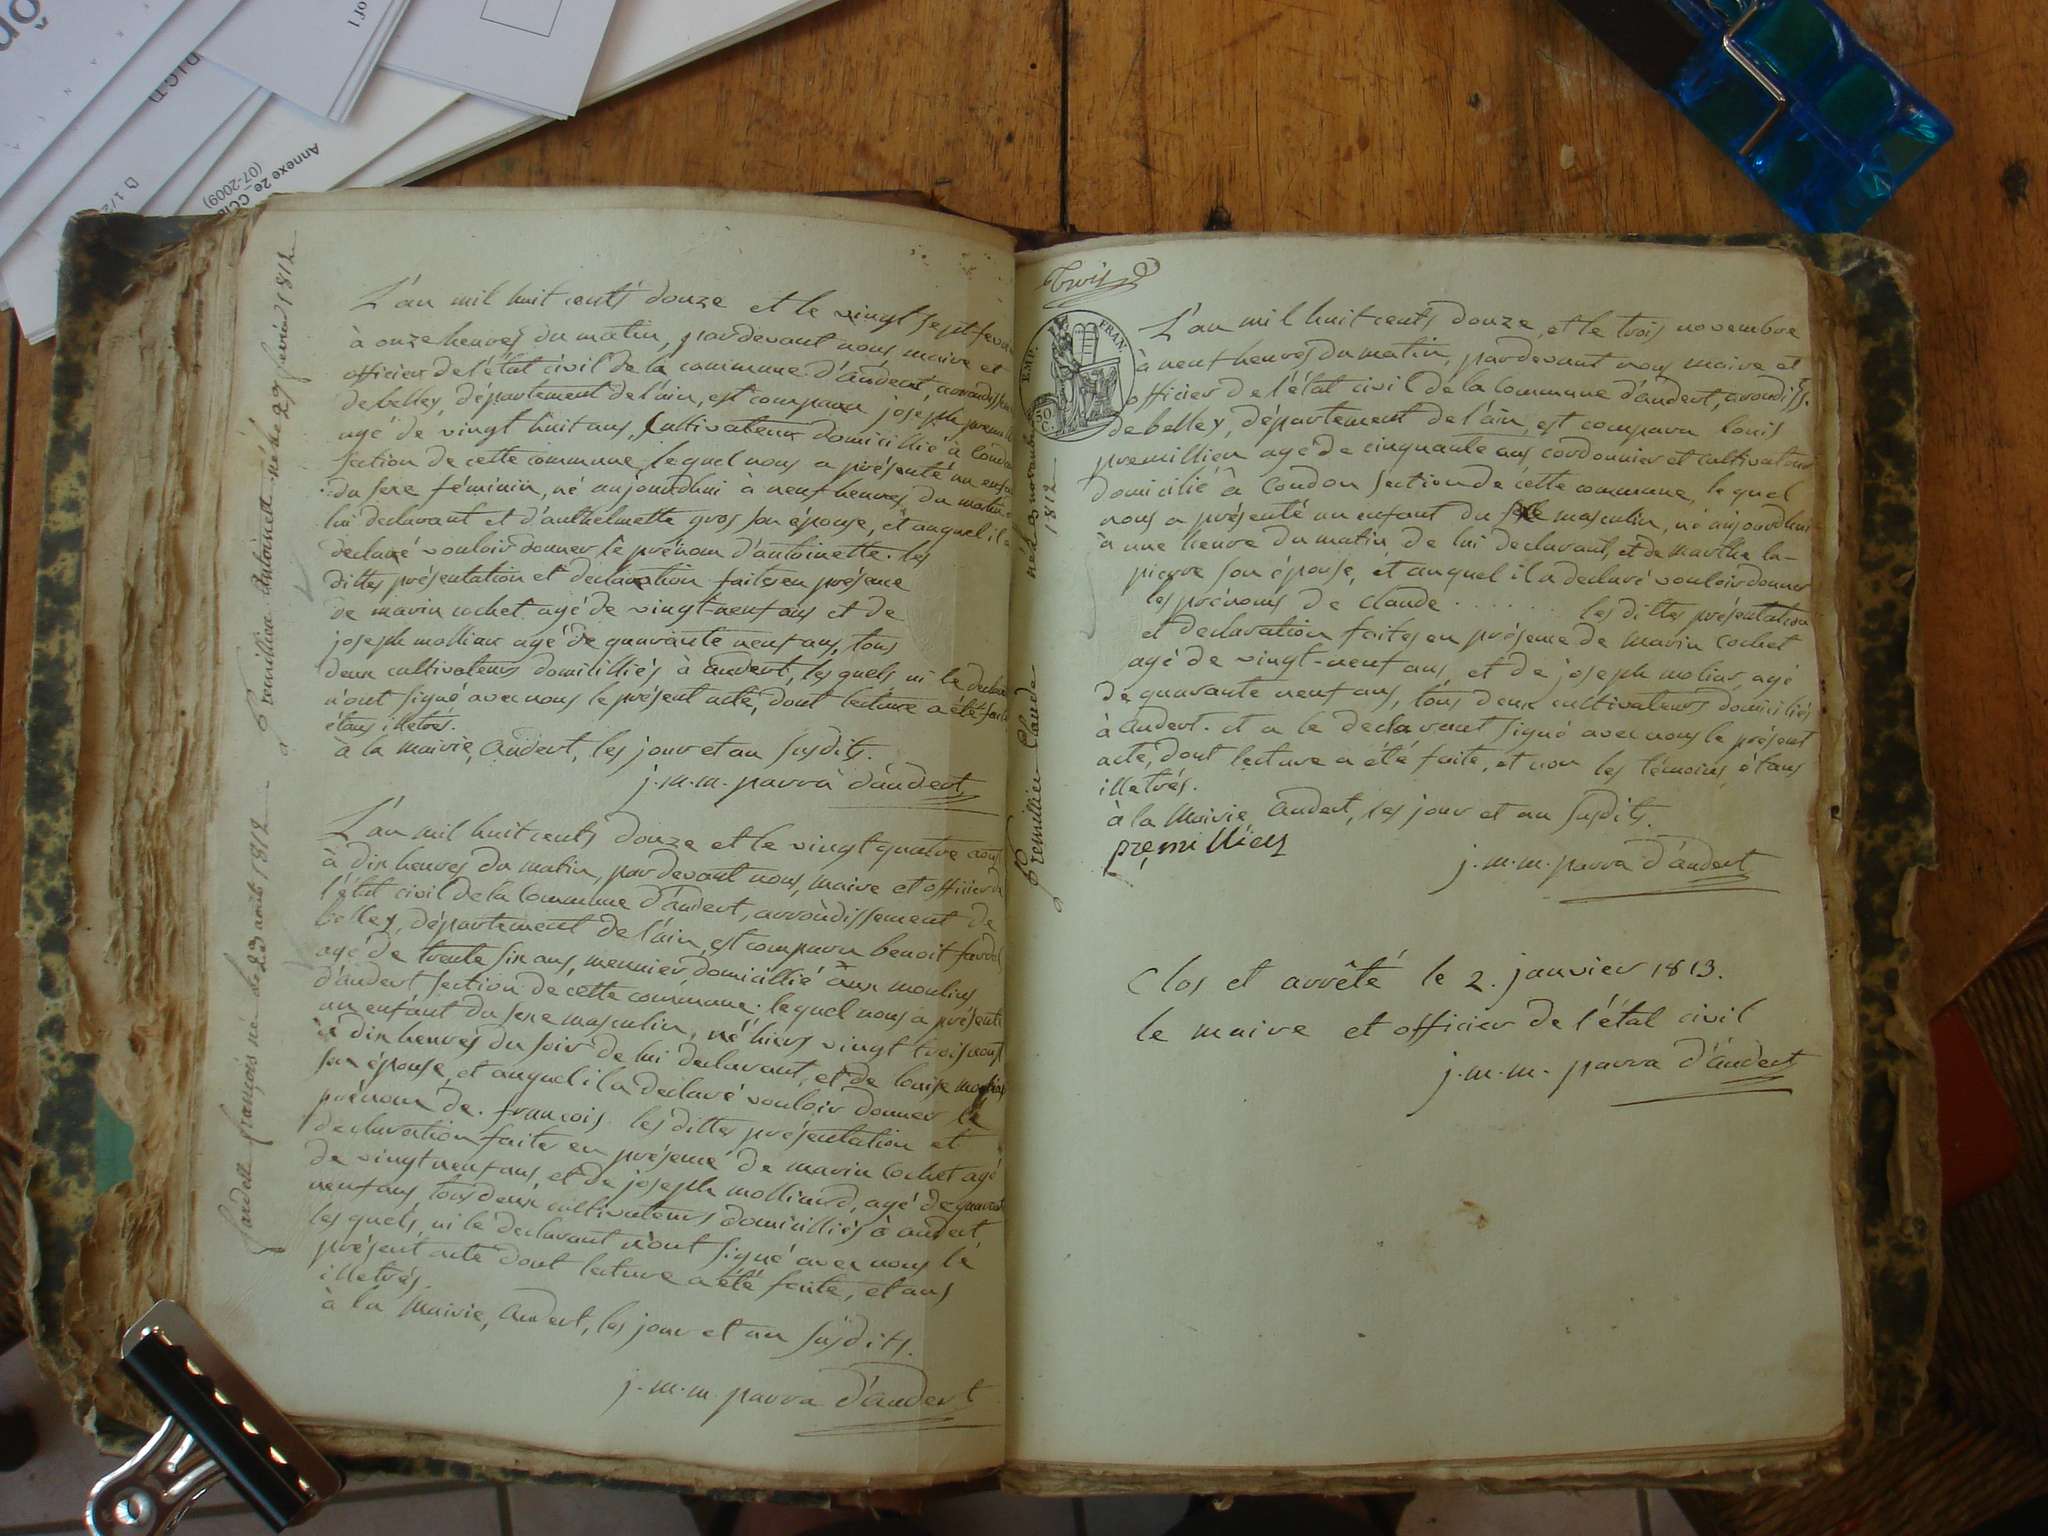 Annexe 2e_CCIa
(07-2009)
of 1
premillien antoinette née le 27 février 1812
L'an mil huit cents douze et le vingt sept fevr
à onze heures du matin, pardevant nous maire et
officier de l'état civil de la commune d'andert arrondissem
de belley, département de l'ain, est comparu joseph premilli
agé de vingt huit ans, Cultivateur domicillié à Condon
section de cette commune, lequel nous a présenté un enfa
du sexe féminin, né aujourdhui à neuf heures du matin
lui declarant et d'anthelmette gros son épouse, et auquel il a
declaré vouloir donner le prénom d'antoinette. les
dittes présentation et declaration faites en présence
de marin cochet agé de vingt-neuf ans et de
joseph molliar agé de quarante neuf ans, tous
deux cultivateurs domicilliés à andert, les quels ni le declar
n'ont signé avec nous le présent acte, dont lecture a été faite
étans illetrés.
à la mairie, andert, les jour et an susdits.
j. m. m. parra d'andert
françois né le 23 août 1812
L'an mil huit cents douze et le vingt quatre aoust
à dix heures du matin, par devant nous, maire et officier de
l'état civil de la Commune d'andert, arrondissement de
belley, département de l'ain, est comparu benoit
agé de trente six ans, meunier, domicillié aux moulins
d'andert section de cette commune. lequel nous a présenté
un enfant du sexe masculin, né hiers vingt trois aoust
à dix heures du soir de lui declarant, et de louise
son épouse, et auquel il a declaré vouloir donner le
prénom de. françois. les dittes présentation et
declaration faites en présence de marin Cochet agé
de vingt neuf ans, et de joseph molliard, agé de quarante
neuf ans, tous deux cultivateurs domicilliés à andert,
les quels, ni le declarant n'ont signé avec nous le
présent acte dont lecture a été faite, etans
illetrés.
à la Mairie, andert, les jour et an susdits.
j. m. m. parra d'andert
Trois
EMP. FRAN.
50 C.
premillien Claude né le 3 novembre 1812
L'an mil huit cents douze, et le trois novembre
à neuf heures du matin, pardevant nous maire et
officier de l'état civil de la Commune d'andert, arondiss.
de belley, département de l'ain, est comparu louis
premillien agé de cinquante ans cordonnier et cultivateur
domicilié à Condon section de cette commune, le quel
nous a présenté un enfant du sexe masculin, né aujourdhui
à une heure du matin de lui declarant, et de marthe la-
pierre son épouse, et auquel il a declaré vouloir donner
les prénoms de Claude . . . . . . les dittes présentation
et declaration faites en présence de marin Cochet
agé de vingt-neuf ans, et de joseph moliar, agé
de quarante neuf ans, tous deux cultivateurs domiciliés
à andert. et a le declarant signé avec nous le présent
acte, dont lecture a été faite, et non les témoins étans
illetrés.
à la Mairie, andert, les jour et an susdits.
premillien
j. m. m. parra d'andert
Clos et arrêté le 2. janvier 1813.
le maire et officier de l'état civil
j. m. m. parra d'andert